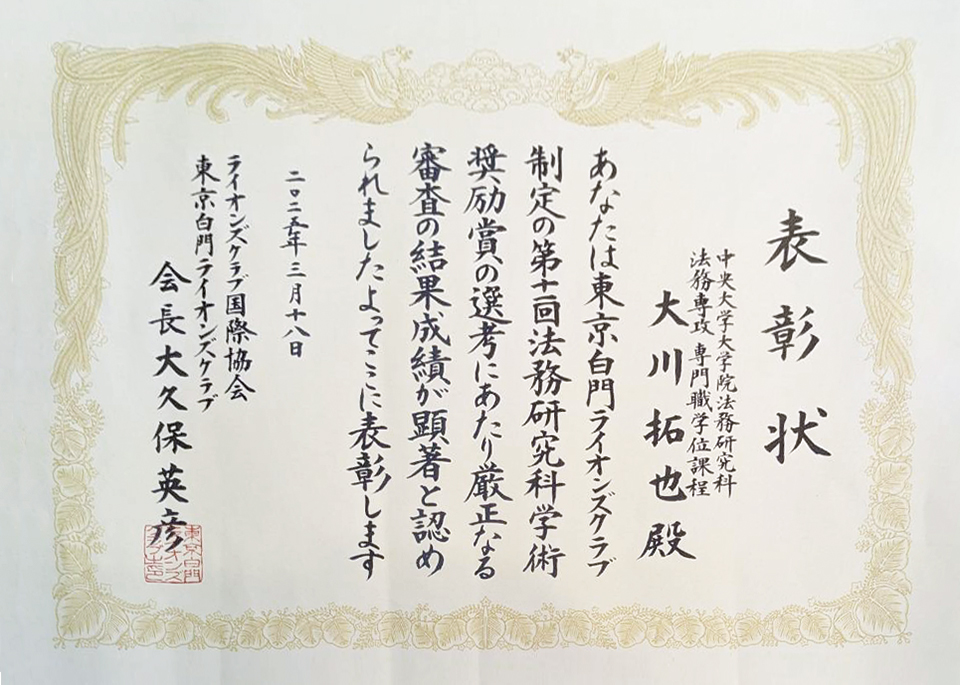 表彰状
中央大学大学院法務研究科
法務専攻 専門職学位課程
大川拓也殿
あなたは東京白門ライオンズクラブ
制定の第十一回法務研究科学術
奨励賞の選考にあたり厳正なる
審査の結果、成績が顕著と認め
られましたよってここに表彰します
二〇二五年三月十八日
ライオンズクラブ国際協会
東京白門ライオンズクラブ
会長大久保英彦